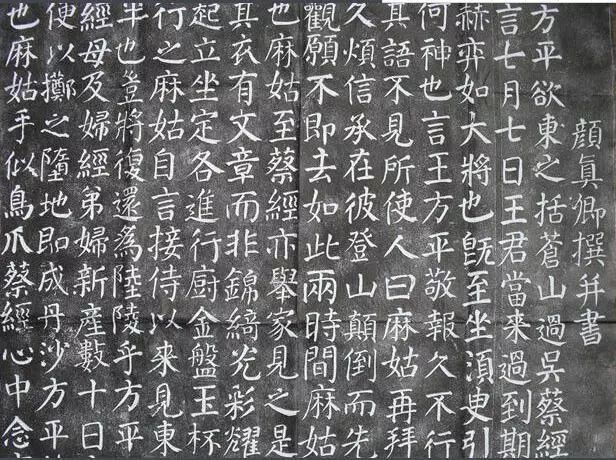 顏真卿撰并書
方平欲東之括蒼山過吳蔡經
言七月七日王君當来過到期
赫弈如大將也既至坐須臾引
何神也言王方平敬報久不行
其語不見所使人曰麻姑再拜
久煩信承在彼登山顛倒而先
觀願不即去如此兩時間麻姑
也麻姑至蔡經亦舉家見之是
其衣有文章而非錦綺光彩耀
起立坐定各進行廚金盤玉杯
行之麻姑自言接侍以来見東
半也豈將復還為陸陵乎方平
經母及婦經弟婦新産數十日
便以擲之墮地即成丹沙方平
也麻姑手似鳥爪蔡經心中念